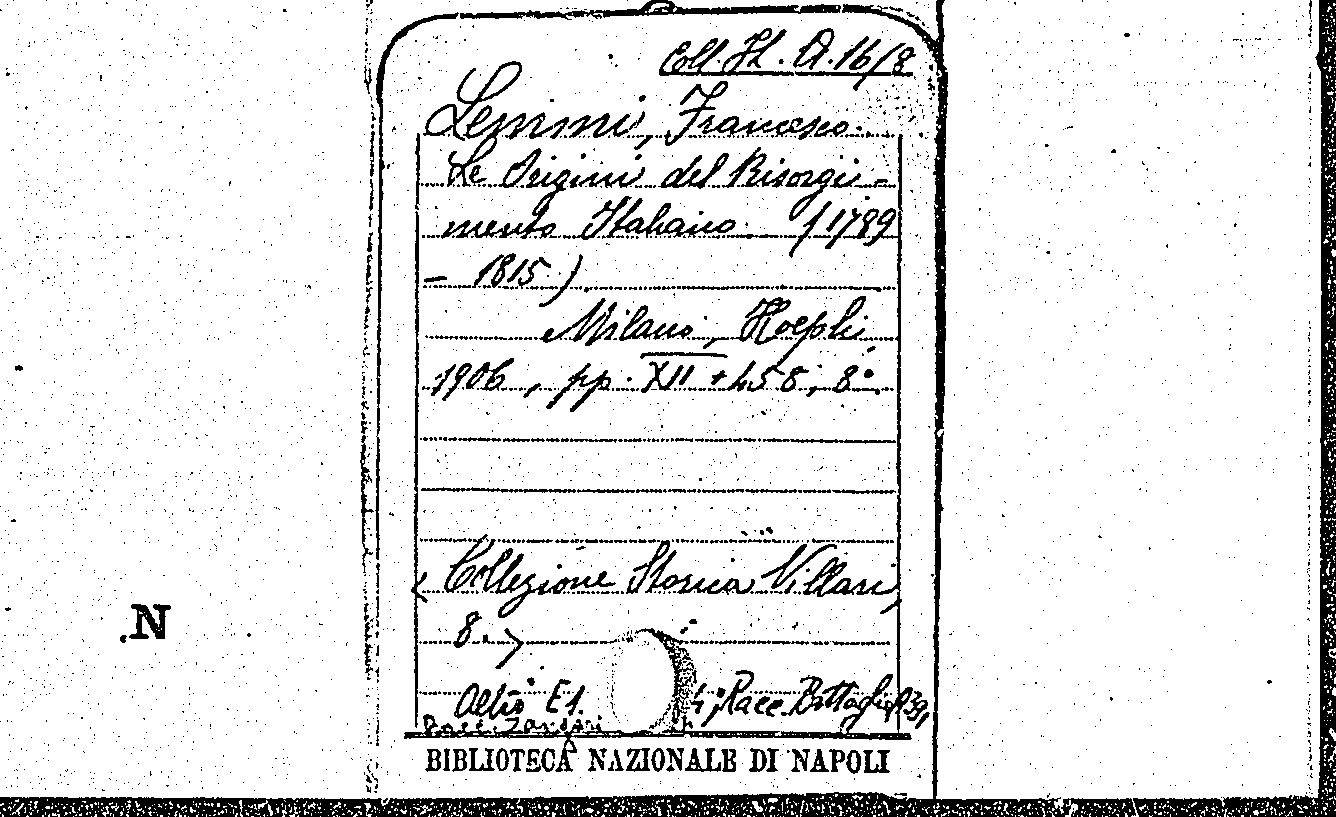 Coll. St. A. 16/8
Lemmi, Francesco.
Le Origini del Risorgi-
mento Italiano. (1789
- 1815)
Milano, Hoepli,
1906, pp. XII + 458, 8°.
< Collezione Storica Villari,
8. >
Altro Es.
; Racc. Battaglia
Racc.
BIBLIOTECA NAZIONALE DI NAPOLI
.N